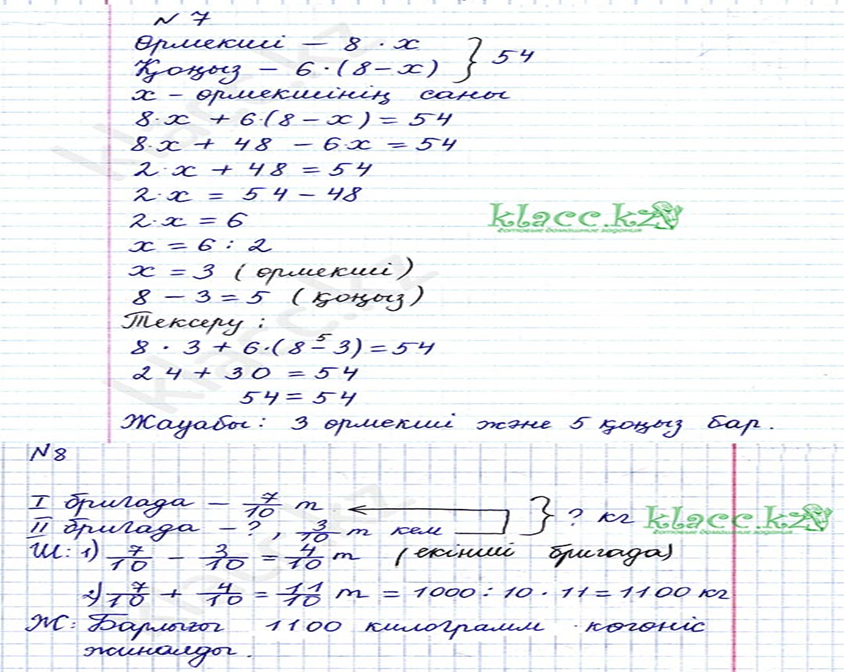 N 7
Өрмекші – 8 · x
Қоңыз – 6 · (8 – x) } 54
x – өрмекшінің саны
8 · x + 6 · (8 – x) = 54
8 · x + 48 – 6 x = 54
2 · x + 48 = 54
2 · x = 54 – 48
2 · x = 6
klacc.kz
готовые домашние задания
x = 6 : 2
x = 3 (өрмекші)
8 – 3 = 5 (қоңыз)
Тексеру :
5
8 · 3 + 6 · (8 – 3) = 54
24 + 30 = 54
54 = 54
Жауабы: 3 өрмекші және 5 қоңыз бар.
N8
I бригада – 7/10 т
II бригада – ? , 3/10 т кем } ? кг
klacc.kz
готовые домашние задания
Ш: 1) 7/10 – 3/10 = 4/10 т (екінші бригада)
2) 7/10 + 4/10 = 11/10 т = 1000 : 10 · 11 = 1100 кг
Ж: Барлығы 1100 килограмм көгөніс
жиналды.